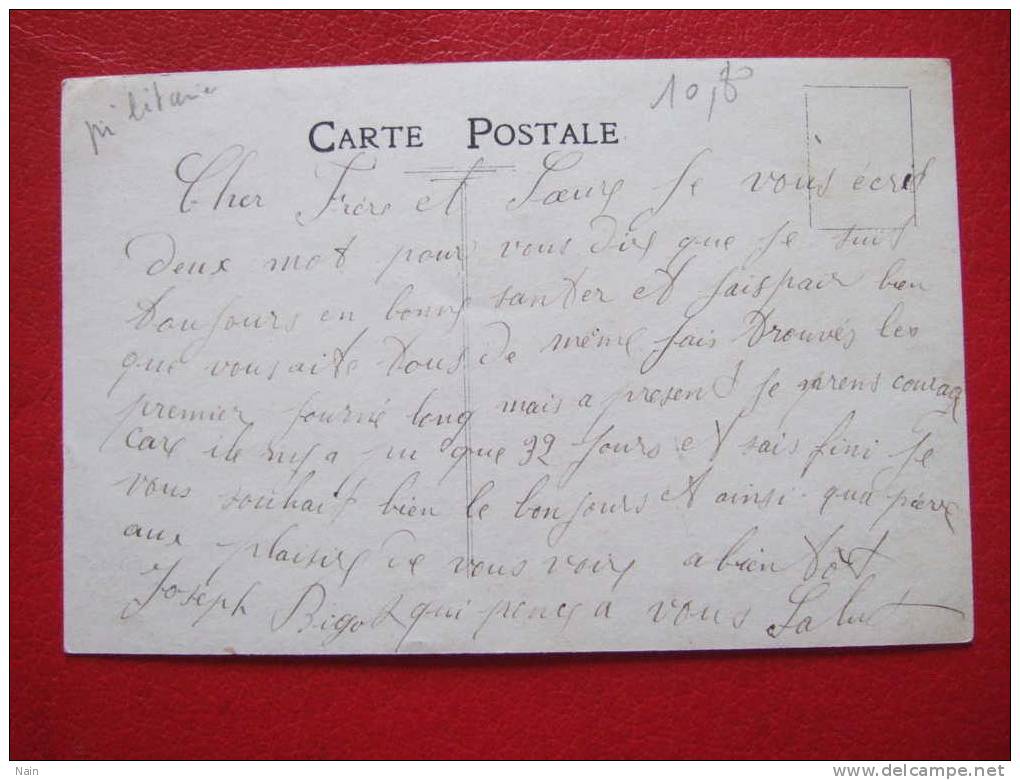 militaria
10,8
CARTE POSTALE
Cher Frère et Soeurs Je vous écrit
deux mot pour vous dire que Je suis
toujours en bonne santer et Jaispair bien
que vous aite tous de même Jais trouvés les
premier Journé long mais a present Je prens courag
care ile nya pu que 32 Jours et sais fini Je
vous souhait bien le bonjours et ainsi qua pierre
aux plaisire de vous voire a bien tôt
Joseph Bigot qui pense a vous Salut
Nain
www.delcampe.net